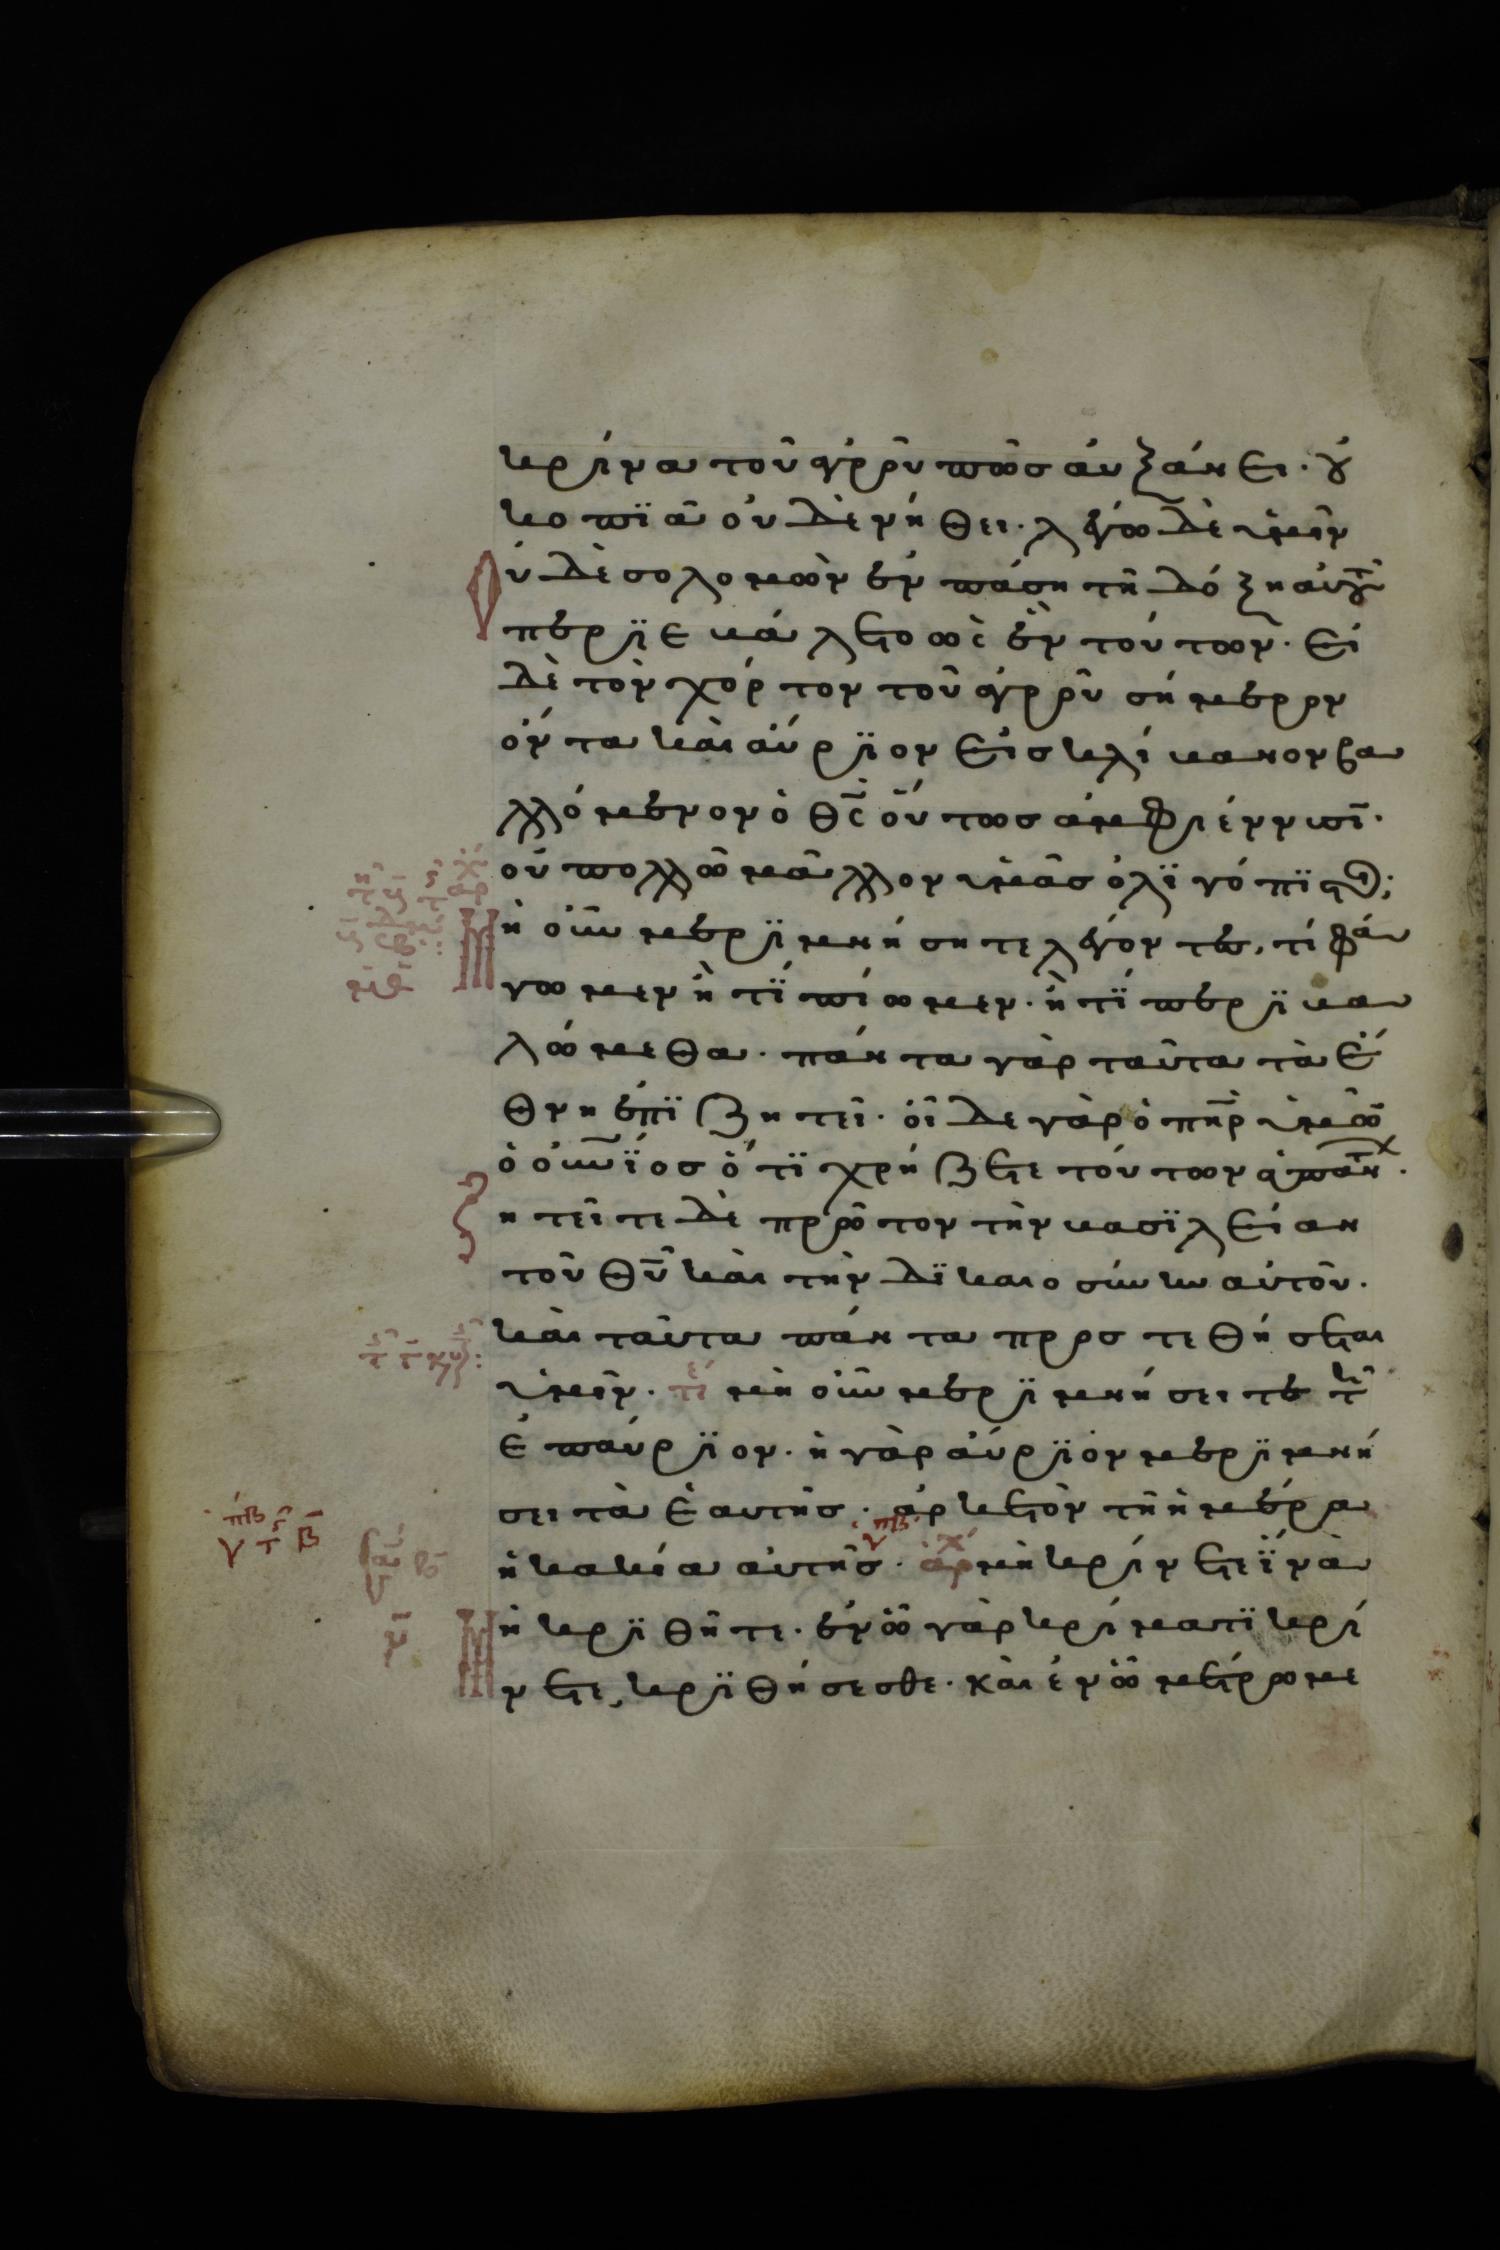 κρίνα τοῦ ἀγροῦ πῶσ αὐξάνει· οὐ
κοπϊᾶ οὐδὲ νήθει· λέγω δὲ ὑμῖν
Οὐδὲ σολομὼν ἐν πάση τῆ δόξη αὐτοῦ
περϊεβάλετο ὡς ἓν τούτων· εἰ
δὲ τὸν χόρτον τοῦ ἀγροῦ σήμερον
ὄντα καὶ αὔρϊον εἰσ κλίβανον βα
λλόμενον ὁ θς̅ οὕτωσ ἀμφιέννυσϊ·
οὐ πολλῶ μᾶλλον ὑμᾶσ ὀλϊγόπϊστοι;
Μὴ οὖν μερϊμνήσητε λέγοντες, τί φά
γωμεν ἢ τϊ πίωμεν· ἢ τϊ περϊβα
λώμεθα· πάντα γὰρ ταῦτα τὰ ἔ
θνη ἐπϊζητεῖ· οἶδε γὰρ ὁ πη̅ρ ὑμῶν
ὁ οὐ̅νϊοσ ὅτϊ χρήζετε τούτων ἁπάντων·
Ζητεῖτε δὲ πρῶτον τὴν βασϊλείαν
τοῦ θυ̅ καὶ τὴν δϊκαιοσύνην αὐτοῦ·
καὶ ταῦτα πάντα προστεθήσεται
ὑμῖν· τε μὴ οὖν μερϊμνήσετε τὴν
ἐπαύρϊον· ἡ γὰρ αὔρϊον μερϊμνή
σει τὰ ἑαυτῆσ· ἀρκετὸν τῆ ἡμέρα
ἡ κακία αὐτῆσ· ἀρ μὴ κρίνετε ἵνα
Μὴ κρϊθῆτε· ἐν ὧ γὰρ κρίματϊ κρί
νετε, κρϊθήσεσθε· καὶ ἐν ὧ μέτρω με